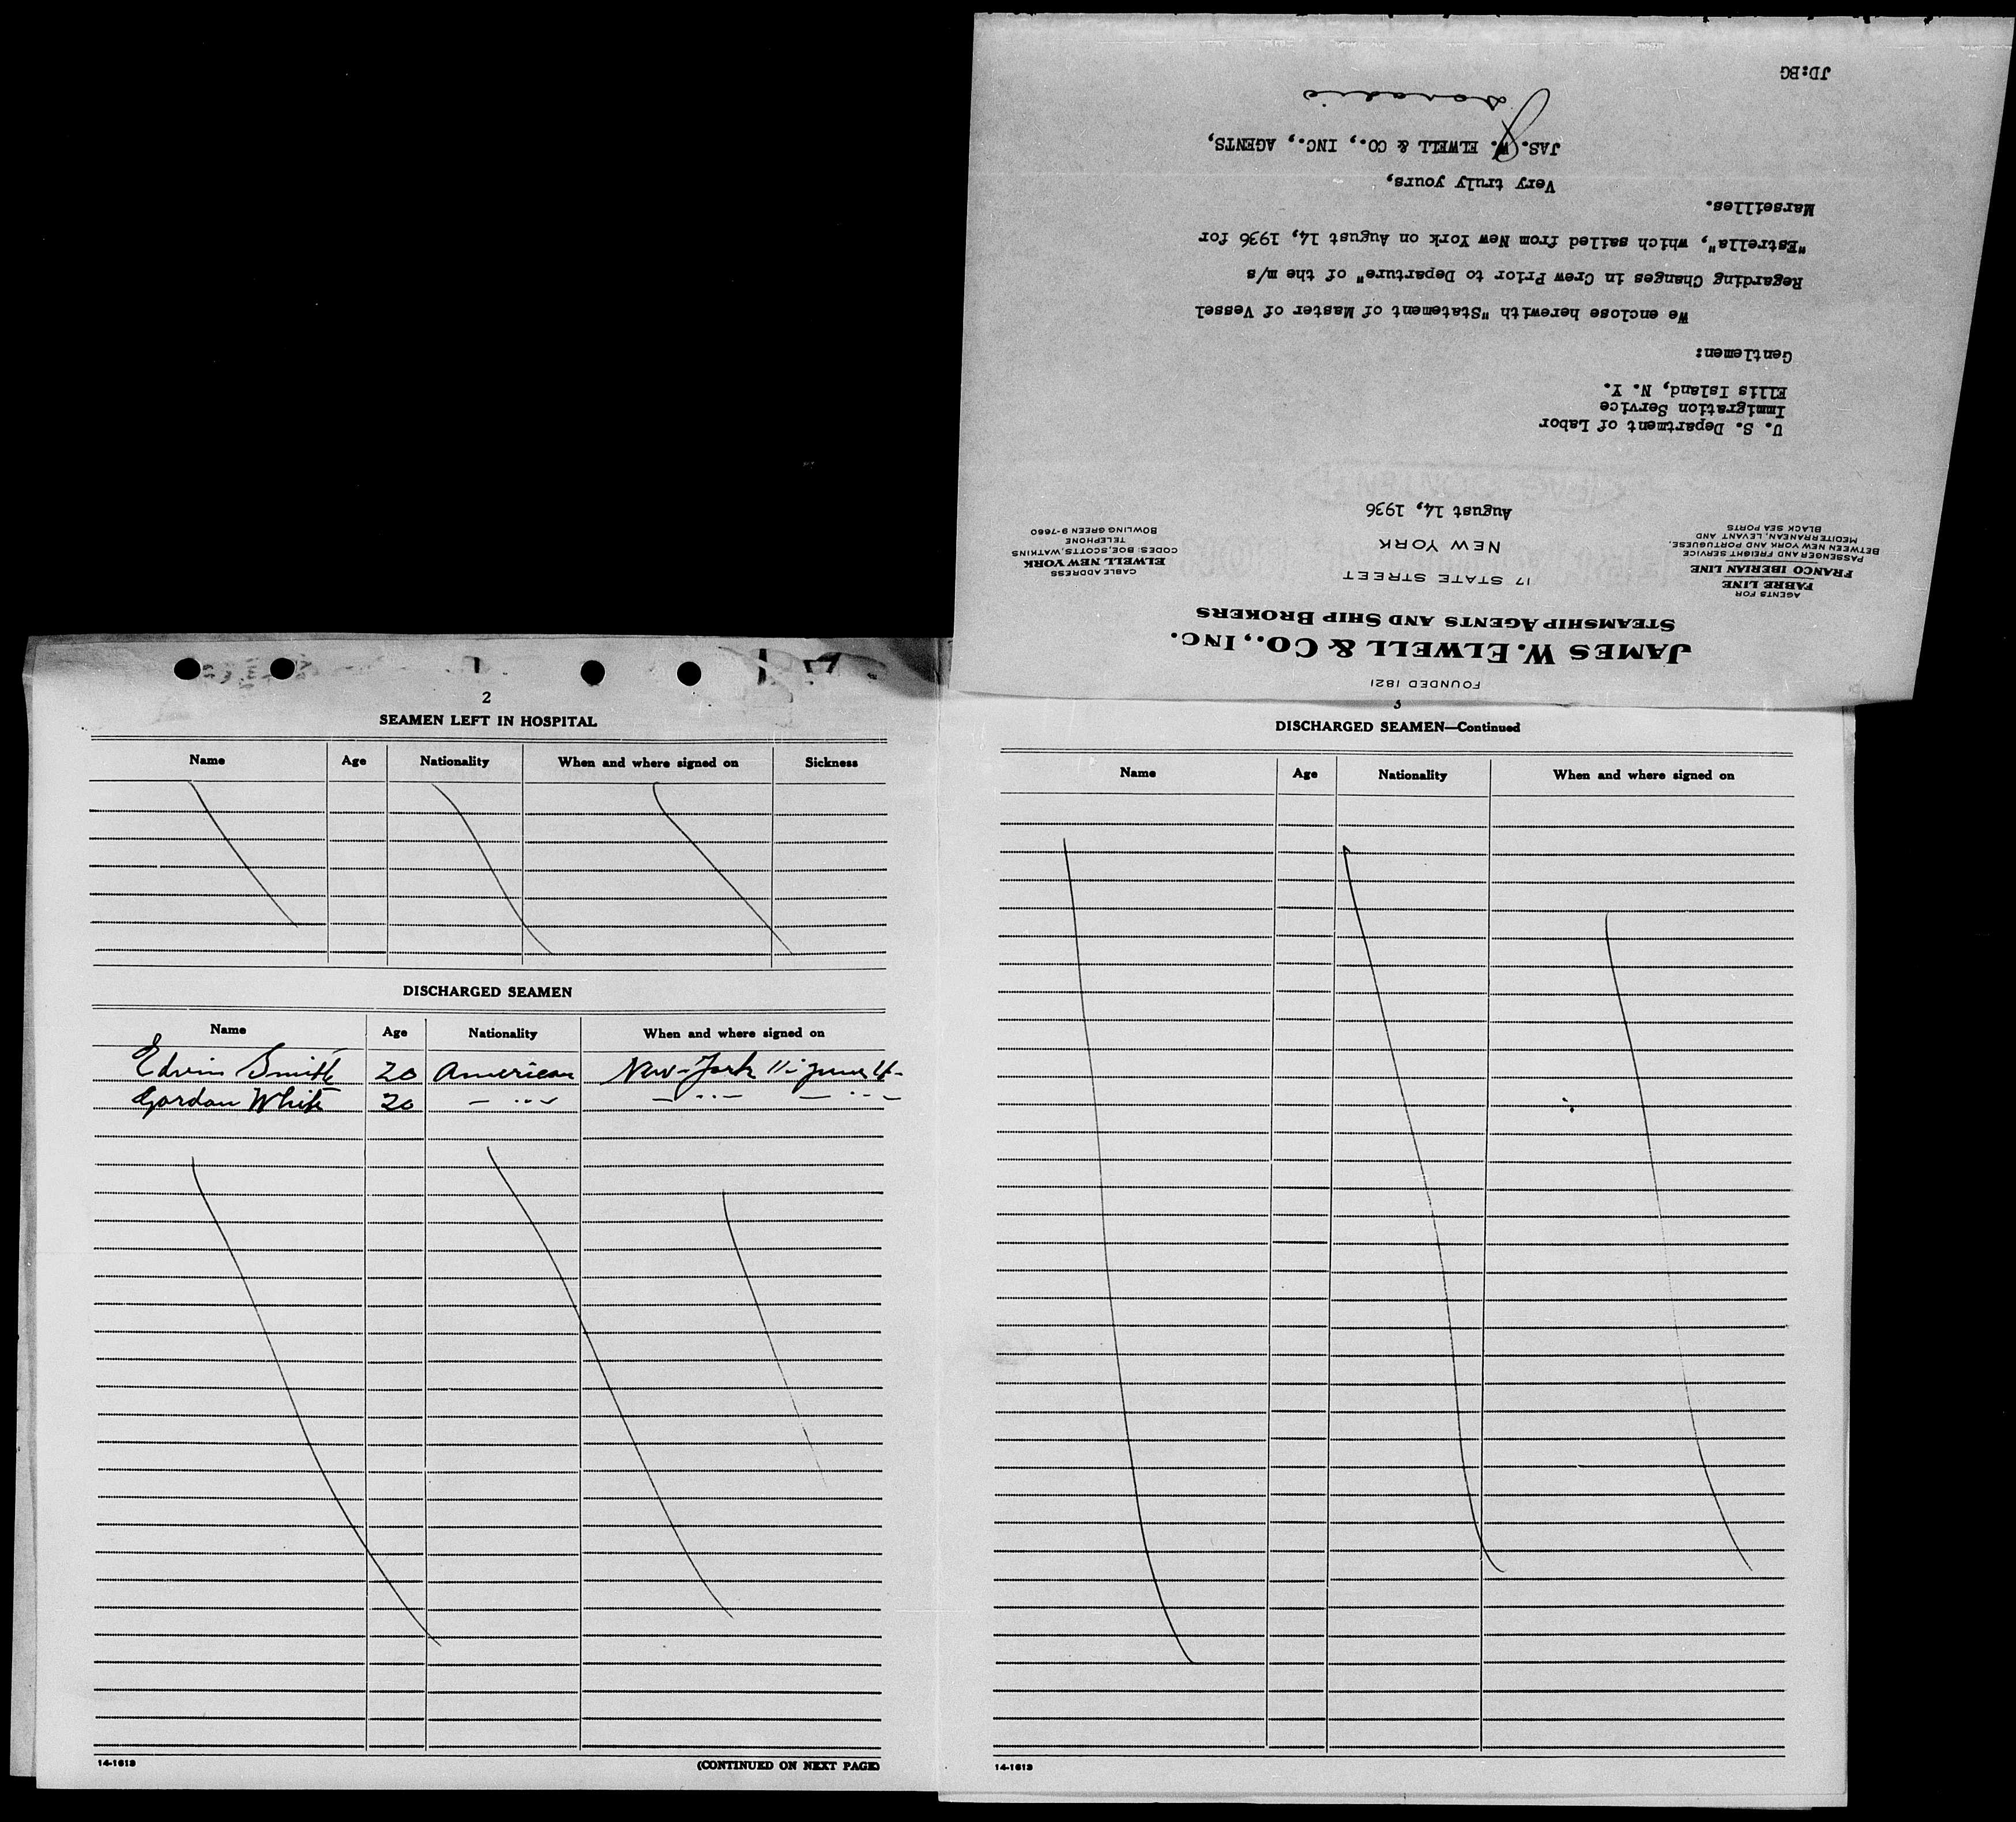 FOUNDED 1821
JAMES W. ELWELL & CO., INC.
STEAMSHIP AGENTS AND SHIP BROKERS
17 STATE STREET
NEW YORK
AGENTS FOR
FABRE LINE
FRANCO IBERIAN LINE
PASSENGER AND FREIGHT SERVICE
BETWEEN NEW YORK AND PORTUGUESE,
MEDITERRANEAN, LEVANT AND
BLACK SEA PORTS
CABLE ADDRESS
ELWELL NEW YORK
CODES: BOE, SCOTTS, WATKINS
TELEPHONE
BOWLING GREEN 9-7660
August 14, 1936
U. S. Department of Labor
Immigration Service
Ellis Island, N. Y.
Gentlemen:
We enclose herewith "Statement of Master of Vessel
Regarding Changes in Crew Prior to Departure" of the m/s
"Estrella", which sailed from New York on August 14, 1936 for
Marseilles.
Very truly yours,
JAS. W. ELWELL & CO., INC., AGENTS,
JD:BG
2
SEAMEN LEFT IN HOSPITAL
Name Age Nationality When and where signed on Sickness
DISCHARGED SEAMEN
Name Age Nationality When and where signed on
Edwin Smith 20 American New-York 11- June
Gordon White 20 — ·· — — ·· — — ·· —
14-1613
(CONTINUED ON NEXT PAGE)
3
DISCHARGED SEAMEN—Continued
Name Age Nationality When and where signed on
14-1613